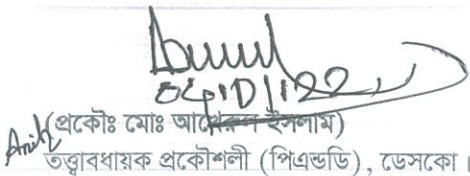 04/01/22
(প্রকৌঃ মোঃ ইসলাম)
তত্ত্বাবধায়ক প্রকৌশলী (পিএন্ডডি), ডেসকো।